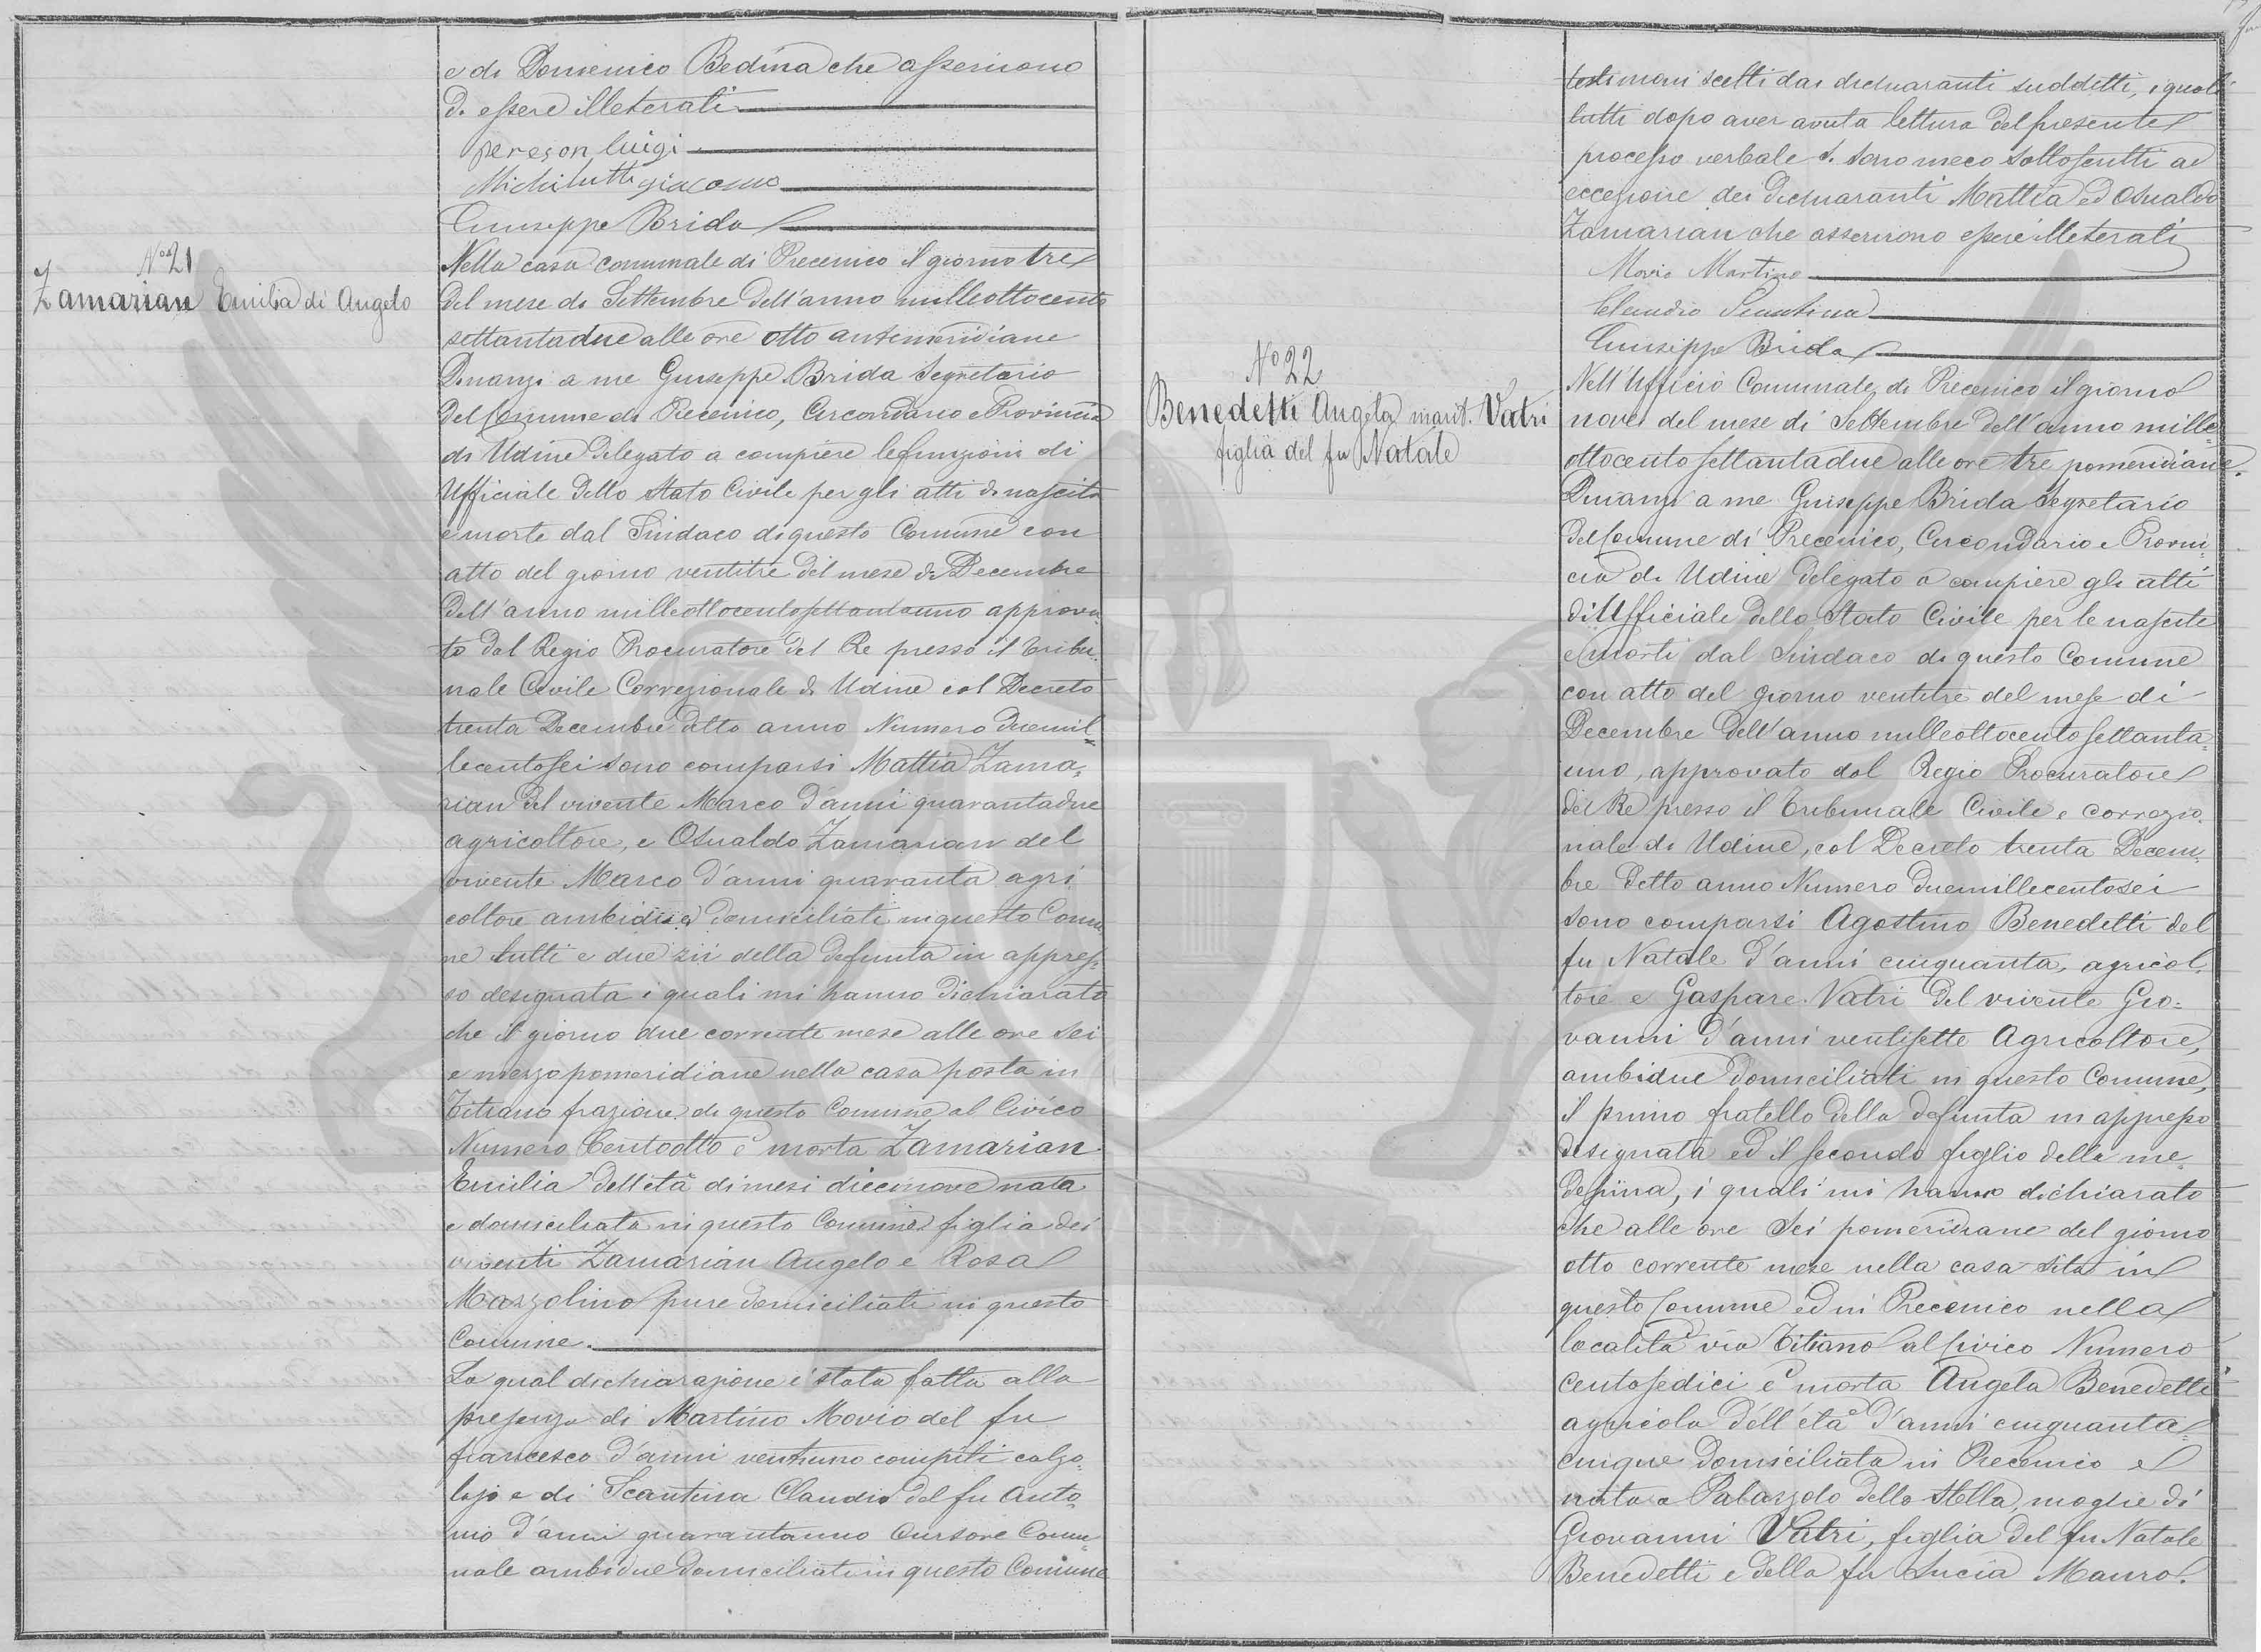 e di Domenico Bedina che asserirono
di essere illeterati
pereson luigi
Michilutti giacomo
Giuseppe Brida
No 21
Zamarian Emilia di Angelo
Nella casa comunale di Precenico il giorno tre
del mese di Settembre dell'anno milleottocento
settantadue alle ore otto antimeridiane
Dinanzi a me Giuseppe Brida Segretario
del Comune di Precenico, Circondario e Provincia
di Udine delegato a compiere le funzioni di
Ufficiale dello Stato Civile per gli atti di nascita
e morte dal Sindaco di questo Comune con
atto del giorno ventitre del mese di Decembre
dell'anno milleottocentosettantauno approva
to dal Regio Procuratore del Re presso il Tribu
nale Civile Correzionale di Udine col Decreto
trenta Decembre detto anno Numero duemil=
lecentosei sono comparsi Mattia Zama=
rian del vivente Marco d'anni quarantadue
agricoltore, e Osualdo Zamarian del
vivente Marco d'anni quaranta agri
coltore ambidue domiciliati in questo Comu
ne tutti e due zii della defunta in appres=
so designata i quali mi hanno dichiarato
che il giorno due corrente mese alle ore sei
e mezzo pomeridiane nella casa posta in
Titiano frazione di questo Comune al Civico
Numero Centootto è morta Zamarian
Emilia dell'età di mesi diecinove nata
e domiciliata in questo Comune figlia dei
viventi Zamarian Angelo e Rosa
Mazzolino pure domiciliati in questo
Comune.
La qual dichiarazione è stata fatta alla
presenza di Martino Movio del fu
francesco d'anni ventiuno compiti calzo
lajo e di Scantina Claudio del fu Anto
nio d'anni quarantauno Cursore Comu=
nale ambidue domiciliati in questo Comune
testimoni scelti dai dichiaranti suddetti, i quali
tutti dopo aver avuta lettura del presente
processo verbale si sono meco sottoscritti ad
eccezione dei dichiaranti Mattia ed Osualdo
Zamarian che asserirono essere illeterati
Movio Martino
Claudio Scantina
Giuseppe Brida
No 22
Benedetti Angela marit. Vatri
figlia del fu Natale
Nell'Ufficio Comunale di Precenico il giorno
nove del mese di Settembre dell'anno mille
ottocento settantadue alle ore tre pomeridiane.
Dinanzi a me Giuseppe Brida Segretario
del Comune di Precenico, Circondario e Provin
cia di Udine delegato a compiere gli atti
di Ufficiale dello Stato Civile per le nascite
e morti dal Sindaco di questo Comune
con atto del giorno ventitre del mese di
Decembre dell'anno milleottocento settanta=
uno, approvato dal Regio Procuratore
del Re presso il Tribunale Civile e correzio
nale di Udine, col Decreto trenta Decem
bre detto anno Numero duemillecentosei
sono comparsi Agostino Benedetti del
fu Natale d'anni cinquanta, agricol
tore e Gaspare Vatri del vivente Gio=
vanni d'anni ventisette Agricoltore,
ambidue domiciliati in questo Comune,
il primo fratello della defunta in appresso
designata ed il secondo figlio della me
desima, i quali mi hanno dichiarato
che alle ore sei pomeridiane del giorno
otto corrente mese nella casa sita in
questo Comune ed in Precenico nella
località via Titiano al civico Numero
centosedici è morta Angela Benedetti
agricola dell'età d'anni cinquanta=
cinque domiciliata in Precenico e
nata a Palazzolo dello Stella, moglie di
Giovanni Vatri, figlia del fu Natale
Benedetti e della fu Lucia Mauro.